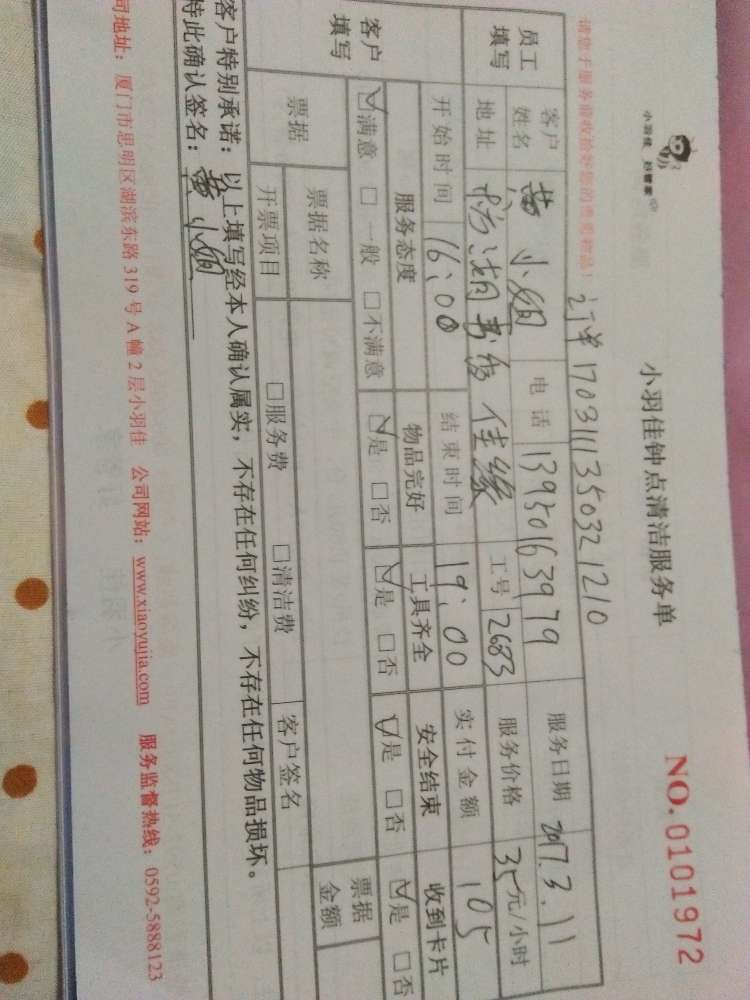 小羽佳 好管家
小羽佳钟点清洁服务单
NO.0101972
请您于服务前收拾好您的贵重物品！
订单 1703111350321210
员工填写
客户姓名 黄小姐 电话 13950163979 服务日期 2017.3.11
地址 佳缘 工号 2683 服务价格 35元/小时
开始时间 16:00 结束时间 19:00 实付金额 105
客户填写
服务态度 物品完好 工具齐全 安全结束 收到卡片
☑满意 □一般 □不满意 ☑是 □否 ☑是 □否 ☑是 □否 ☑是 □否
票据 票据名称 票据金额
开票项目 □服务费 □清洁费 客户签名
客户特别承诺：以上填写经本人确认属实，不存在任何纠纷，不存在任何物品损坏。
特此确认签名：黄小姐
司地址：厦门市思明区湖滨东路319号A幢2层小羽佳 公司网站：www.xiaoyujia.com 服务监督热线：0592-5888123